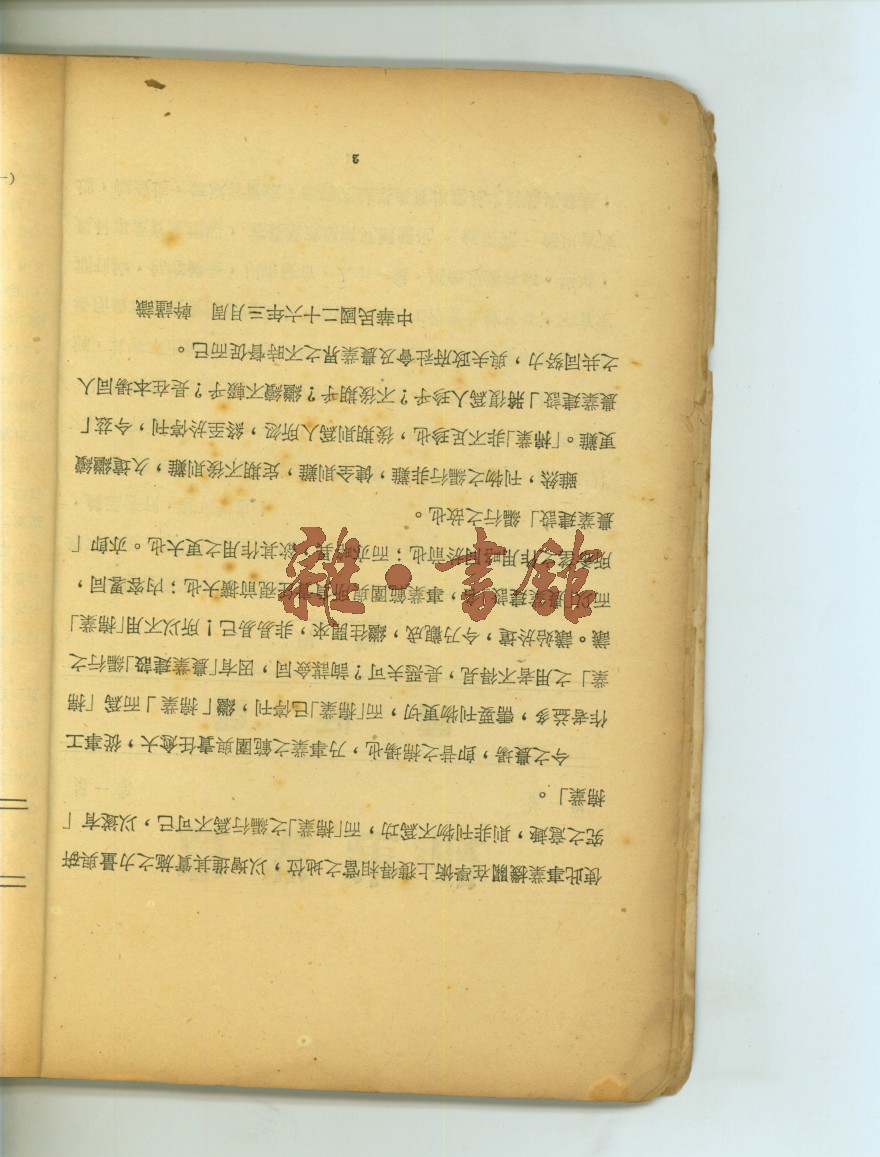 使此事業機關在學術上獲得相當之地位,以增進其實施之力量與研
究之意趣,則非刊物不爲功,而「棉業」之編行爲不可已,以遂有「
棉業」。
今之農場,卽昔之棉場也,乃事業之範圍與責任愈大,從事工
作者益多,需要刊物更切,而「棉業」已停刊,繼「棉業」而爲「棉
業」之用者不得見,是惡夫可?詢謀僉同,因有「農業建設」編行之
議。議始於遠,今乃觀成,繼往開來,非易易已!所以不用「棉業」
而以「農業建設」名,事業範圍與所負責任視前擴大也;內容畧同,
所之作用略同於前也;而亦略異,欲其作用之更大也。亦卽「
農業建設」編行之故也。
雖然,刊物之編行非難,健全則難,定期不後則難,久遠繼續
更難。「棉業」非不足珍也,後期則爲人所忽,終至於停刊,今茲「
農業建設」將復爲人珍乎?不後期乎?繼續不輟乎?是在本場同人
之共同努力,與夫政府社會及農業界之不時督促而已。
中華民國二十六年三月周 幹謹識
2
(一
雜·書館